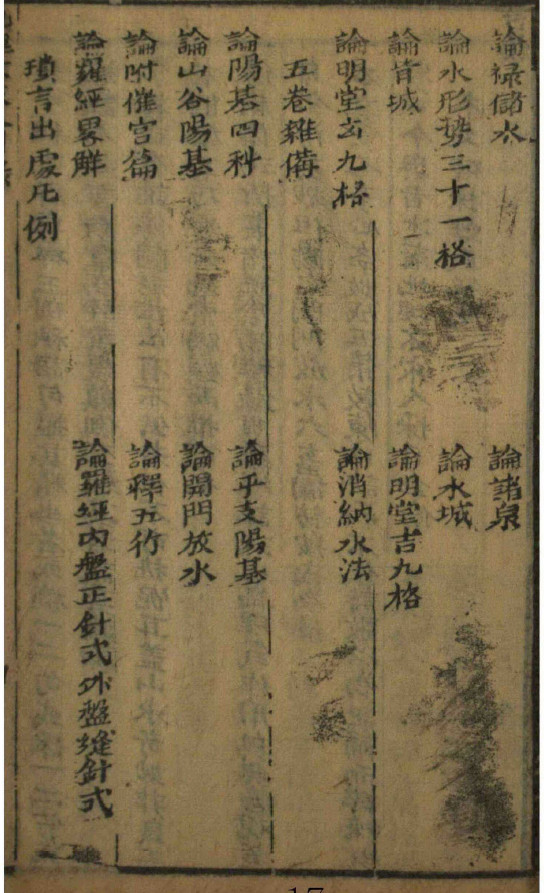 論禄儲水 論諸泉
論水形势三十一格 論水城
論背城 論明堂吉九格
論明堂玄九格 論消納水法
五卷雜俻
論陽基四科 論平支陽基
論山谷陽基 論開門放水
論附催官篇 論釋五行
論羅經畧觧 論羅經內盤正針式外盤縫針式
瑣言出處凡例
17